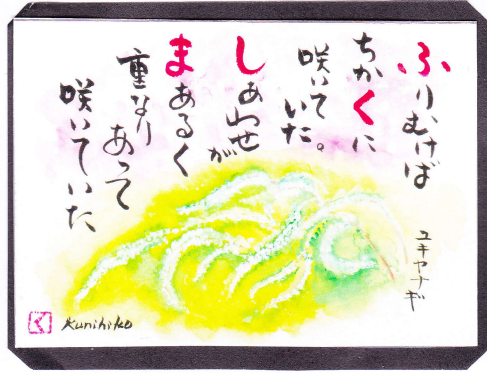 ふりむけば
ちかくに
咲いて
いた。
しあわせが
まあるく
重なり
あって
咲いていた
ユキヤナギ
く
Kunihiko